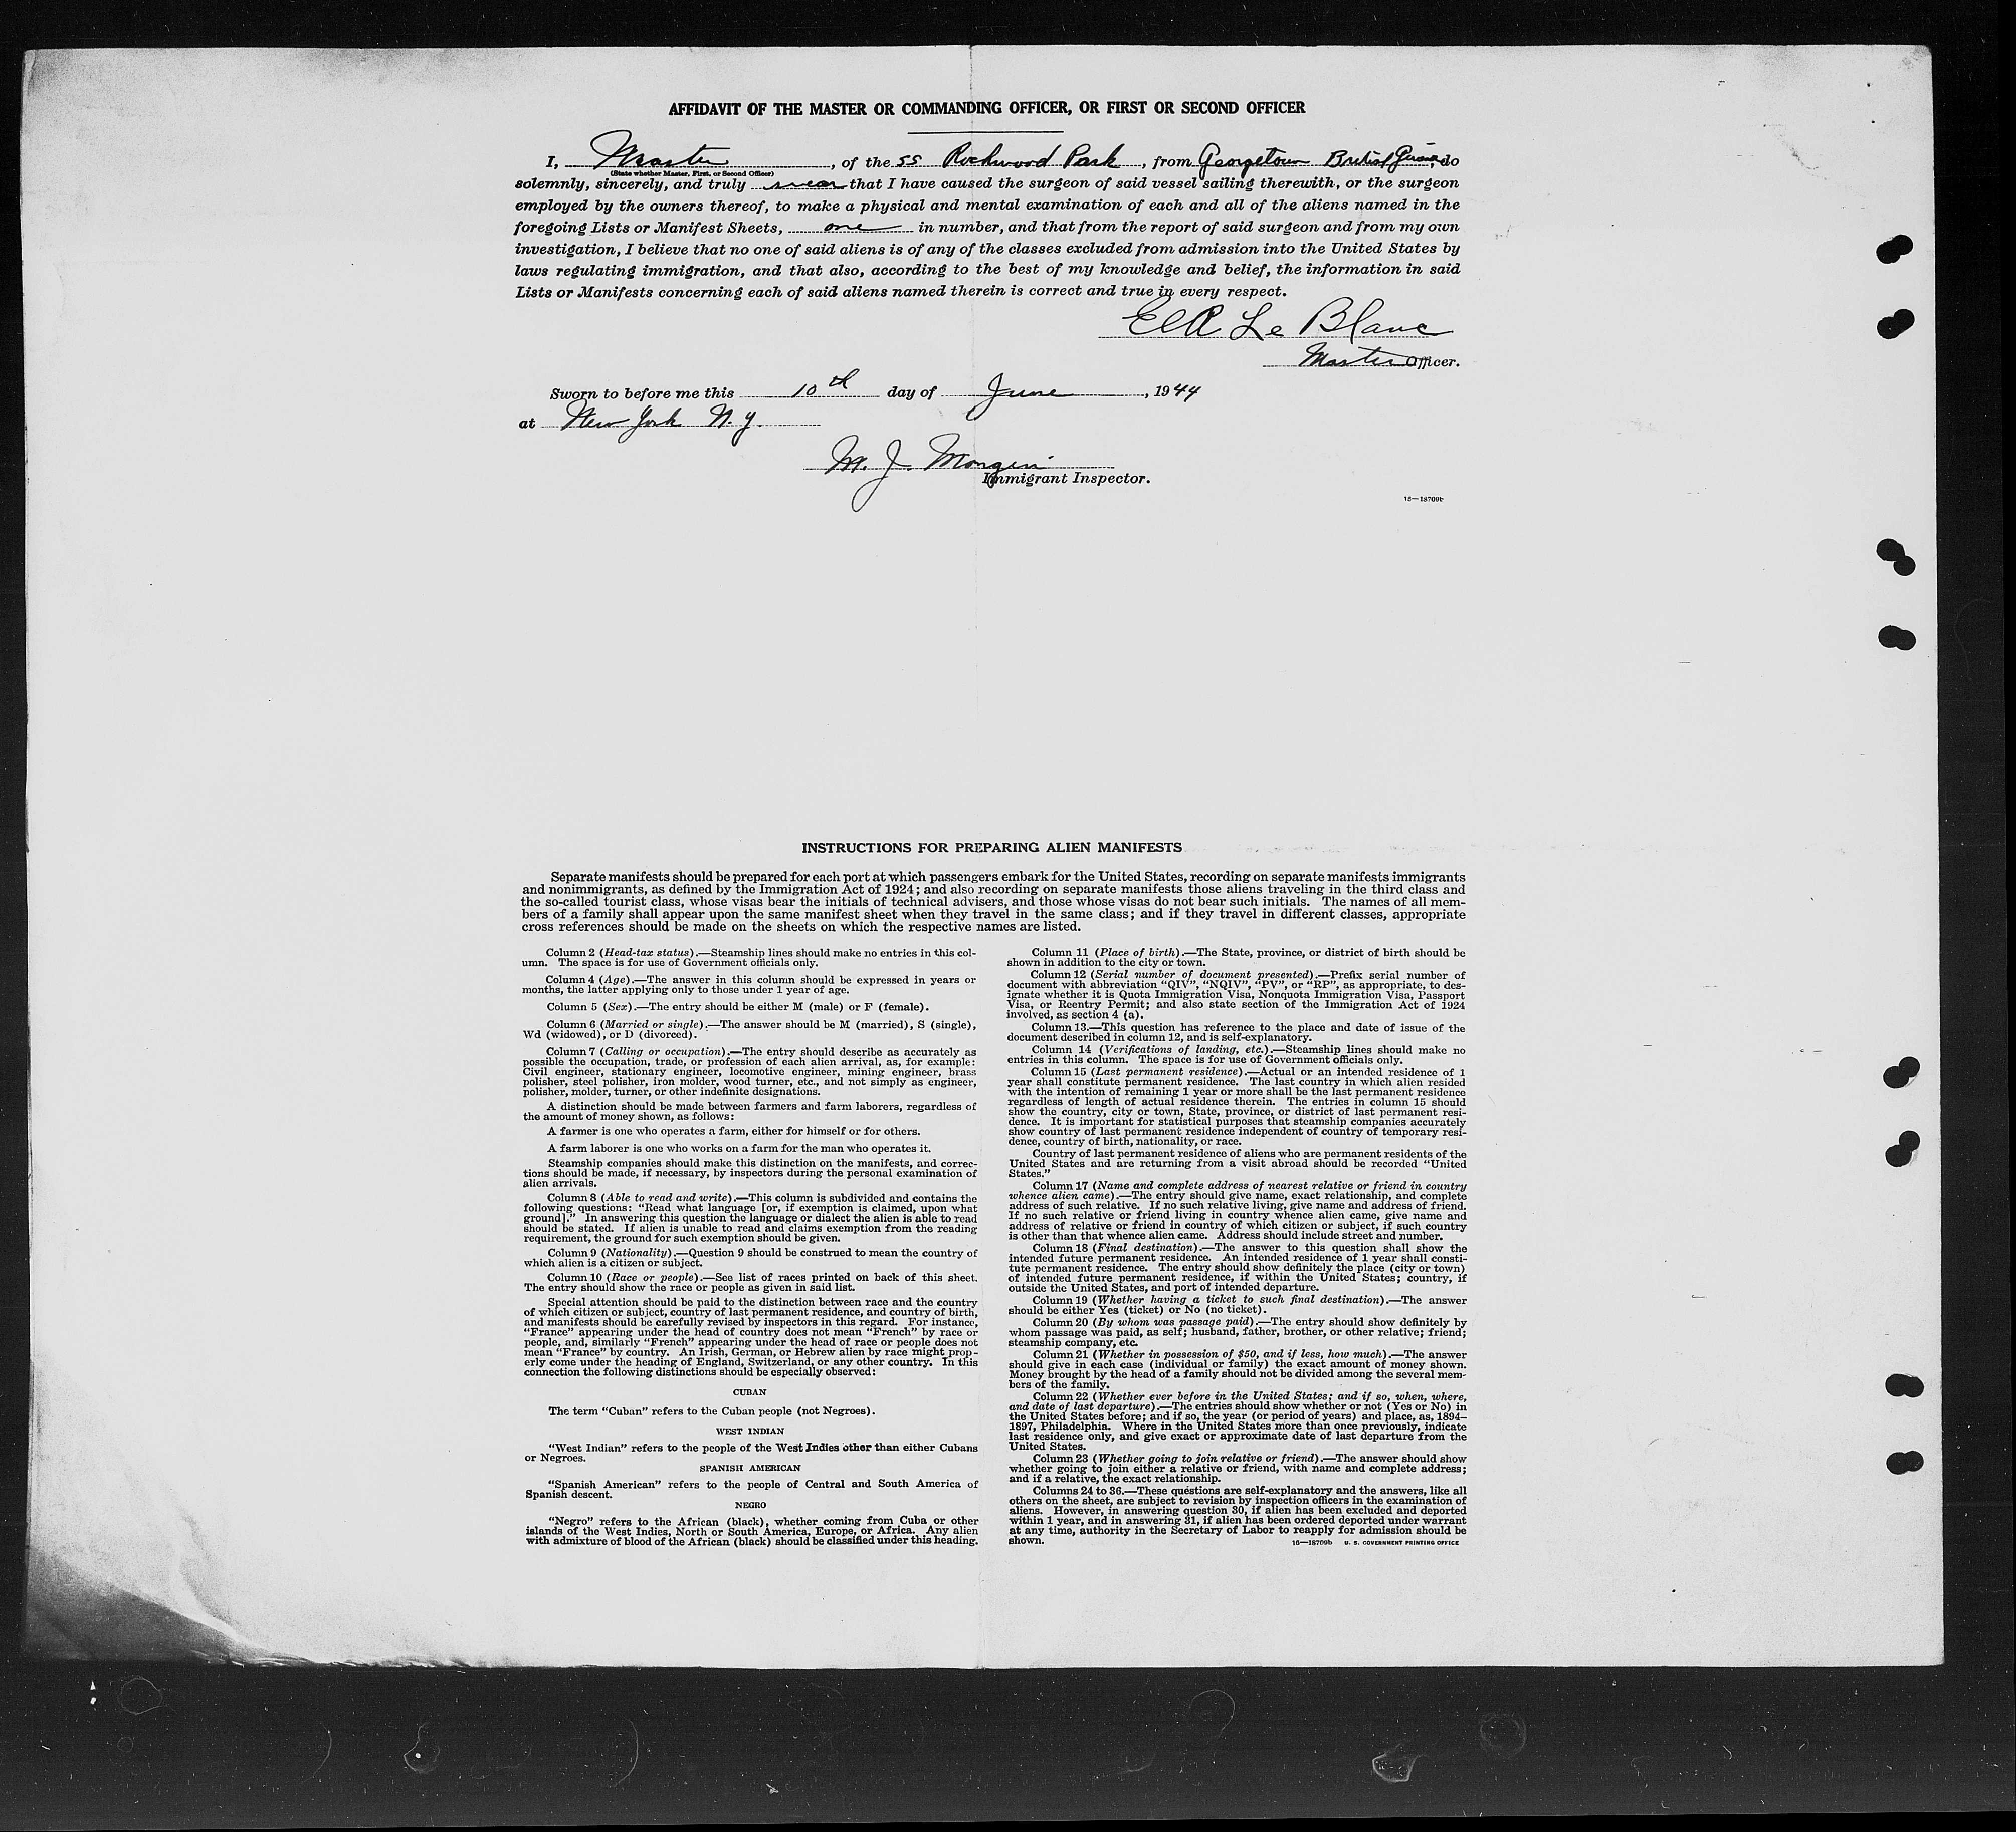 AFFIDAVIT OF THE MASTER OR COMMANDING OFFICER, OR FIRST OR SECOND OFFICER
I, Master, of the SS Rockwood Park, from Georgetown British Guiana, do
(State whether Master, First, or Second Officer)
solemnly, sincerely, and truly swear that I have caused the surgeon of said vessel sailing therewith, or the surgeon
employed by the owners thereof, to make a physical and mental examination of each and all of the aliens named in the
foregoing Lists or Manifest Sheets, one in number, and that from the report of said surgeon and from my own
investigation, I believe that no one of said aliens is of any of the classes excluded from admission into the United States by
laws regulating immigration, and that also, according to the best of my knowledge and belief, the information in said
Lists or Manifests concerning each of said aliens named therein is correct and true in every respect.
Le Blanc
Master Officer.
Sworn to before me this 10th day of June, 1944
at New York N.Y.
M. J.
Immigrant Inspector.
16—18709b
INSTRUCTIONS FOR PREPARING ALIEN MANIFESTS
Separate manifests should be prepared for each port at which passengers embark for the United States, recording on separate manifests immigrants
and nonimmigrants, as defined by the Immigration Act of 1924; and also recording on separate manifests those aliens traveling in the third class and
the so-called tourist class, whose visas bear the initials of technical advisers, and those whose visas do not bear such initials. The names of all mem-
bers of a family shall appear upon the same manifest sheet when they travel in the same class; and if they travel in different classes, appropriate
cross references should be made on the sheets on which the respective names are listed.
Column 2 (Head-tax status).—Steamship lines should make no entries in this col-
umn. The space is for use of Government officials only.
Column 4 (Age).—The answer in this column should be expressed in years or
months, the latter applying only to those under 1 year of age.
Column 5 (Sex).—The entry should be either M (male) or F (female).
Column 6 (Married or single).—The answer should be M (married), S (single),
Wd (widowed), or D (divorced).
Column 7 (Calling or occupation).—The entry should describe as accurately as
possible the occupation, trade, or profession of each alien arrival, as, for example:
Civil engineer, stationary engineer, locomotive engineer, mining engineer, brass
polisher, steel polisher, iron molder, wood turner, etc., and not simply as engineer,
polisher, molder, turner, or other indefinite designations.
A distinction should be made between farmers and farm laborers, regardless of
the amount of money shown, as follows:
A farmer is one who operates a farm, either for himself or for others.
A farm laborer is one who works on a farm for the man who operates it.
Steamship companies should make this distinction on the manifests, and correc-
tions should be made, if necessary, by inspectors during the personal examination of
alien arrivals.
Column 8 (Able to read and write).—This column is subdivided and contains the
following questions: "Read what language [or, if exemption is claimed, upon what
ground]." In answering this question the language or dialect the alien is able to read
should be stated. If alien is unable to read and claims exemption from the reading
requirement, the ground for such exemption should be given.
Column 9 (Nationality).—Question 9 should be construed to mean the country of
which alien is a citizen or subject.
Column 10 (Race or people).—See list of races printed on back of this sheet.
The entry should show the race or people as given in said list.
Special attention should be paid to the distinction between race and the country
of which citizen or subject, country of last permanent residence, and country of birth,
and manifests should be carefully revised by inspectors in this regard. For instance,
"France" appearing under the head of country does not mean "French" by race or
people, and, similarly "French" appearing under the head of race or people does not
mean "France" by country. An Irish, German, or Hebrew alien by race might prop-
erly come under the heading of England, Switzerland, or any other country. In this
connection the following distinctions should be especially observed:
CUBAN
The term "Cuban" refers to the Cuban people (not Negroes).
WEST INDIAN
"West Indian" refers to the people of the West Indies other than either Cubans
or Negroes.
SPANISH AMERICAN
"Spanish American" refers to the people of Central and South America of
Spanish descent.
NEGRO
"Negro" refers to the African (black), whether coming from Cuba or other
islands of the West Indies, North or South America, Europe, or Africa. Any alien
with admixture of blood of the African (black) should be classified under this heading.
Column 11 (Place of birth).—The State, province, or district of birth should be
shown in addition to the city or town.
Column 12 (Serial number of document presented).—Prefix serial number of
document with abbreviation "QIV", "NQIV", "PV", or "RP", as appropriate, to des-
ignate whether it is Quota Immigration Visa, Nonquota Immigration Visa, Passport
Visa, or Reentry Permit; and also state section of the Immigration Act of 1924
involved, as section 4 (a).
Column 13.—This question has reference to the place and date of issue of the
document described in column 12, and is self-explanatory.
Column 14 (Verifications of landing, etc.).—Steamship lines should make no
entries in this column. The space is for use of Government officials only.
Column 15 (Last permanent residence).—Actual or an intended residence of 1
year shall constitute permanent residence. The last country in which alien resided
with the intention of remaining 1 year or more shall be the last permanent residence
regardless of length of actual residence therein. The entries in column 15 should
show the country, city or town, State, province, or district of last permanent resi-
dence. It is important for statistical purposes that steamship companies accurately
show country of last permanent residence independent of country of temporary resi-
dence, country of birth, nationality, or race.
Country of last permanent residence of aliens who are permanent residents of the
United States and are returning from a visit abroad should be recorded "United
States."
Column 17 (Name and complete address of nearest relative or friend in country
whence alien came).—The entry should give name, exact relationship, and complete
address of such relative. If no such relative living, give name and address of friend.
If no such relative or friend living in country whence alien came, give name and
address of relative or friend in country of which citizen or subject, if such country
is other than that whence alien came. Address should include street and number.
Column 18 (Final destination).—The answer to this question shall show the
intended future permanent residence. An intended residence of 1 year shall consti-
tute permanent residence. The entry should show definitely the place (city or town)
of intended future permanent residence, if within the United States; country, if
outside the United States, and port of intended departure.
Column 19 (Whether having a ticket to such final destination).—The answer
should be either Yes (ticket) or No (no ticket).
Column 20 (By whom was passage paid).—The entry should show definitely by
whom passage was paid, as self; husband, father, brother, or other relative; friend;
steamship company, etc.
Column 21 (Whether in possession of $50, and if less, how much).—The answer
should give in each case (individual or family) the exact amount of money shown.
Money brought by the head of a family should not be divided among the several mem-
bers of the family.
Column 22 (Whether ever before in the United States; and if so, when, where,
and date of last departure).—The entries should show whether or not (Yes or No) in
the United States before; and if so, the year (or period of years) and place, as, 1894–
1897, Philadelphia. Where in the United States more than once previously, indicate
last residence only, and give exact or approximate date of last departure from the
United States.
Column 23 (Whether going to join relative or friend).—The answer should show
whether going to join either a relative or friend, with name and complete address;
and if a relative, the exact relationship.
Columns 24 to 36.—These questions are self-explanatory and the answers, like all
others on the sheet, are subject to revision by inspection officers in the examination of
aliens. However, in answering question 30, if alien has been excluded and deported
within 1 year, and in answering 31, if alien has been ordered deported under warrant
at any time, authority in the Secretary of Labor to reapply for admission should be
shown.
16—18709b U. S. GOVERNMENT PRINTING OFFICE